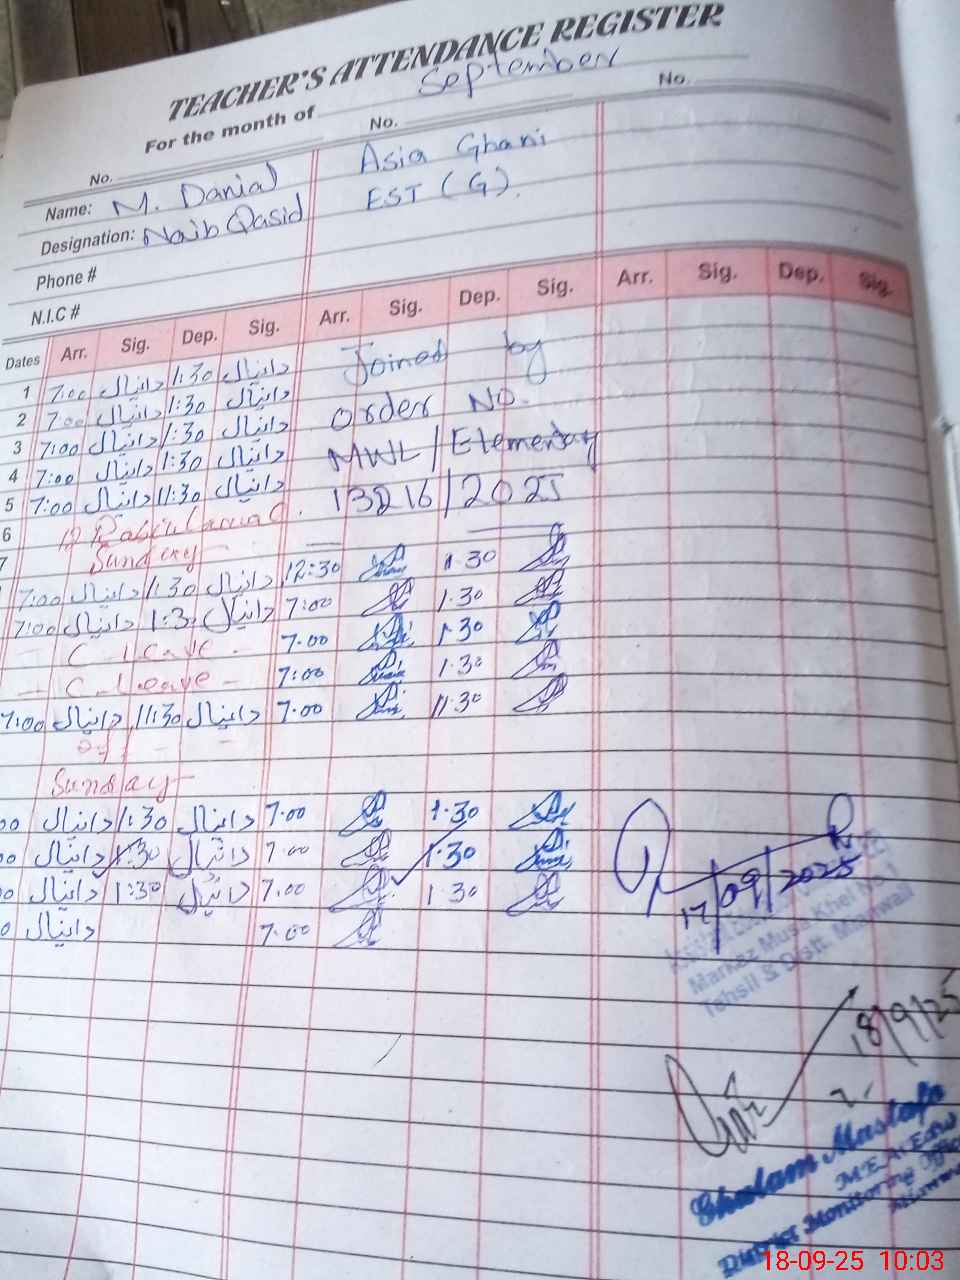 TEACHER'S ATTENDANCE REGISTER
For the month of September
No. No. No.
Name: M. Danial Asia Ghani
Designation: Naib Qasid EST (G).
Phone #
N.I.C #
Dates Arr. Sig. Dep. Sig. Arr. Sig. Dep. Sig. Arr. Sig. Dep. Sig.
1 7:00 دانیال 1:30 دانیال Joined by
2 7:00 دانیال 1:30 دانیال Order No.
3 7:00 دانیال 1:30 دانیال MWL/Elementary
4 7:00 دانیال 1:30 دانیال 13216/2025
5 7:00 دانیال 11:30 دانیال
6 12
7 Sunday
7:00 دانیال 1:30 دانیال 12:30 1.30
7:00 دانیال 1:3 دانیال 7:00 1.30
C. Leave 7.00 1.30
C. Leave 7:00 1.30
7:00 دانیال 11:30 دانیال 7.00 11.30
Off
Sunday
00 دانیال 1:30 دانیال 7.00 1.30
00 دانیال 1:30 دانیال 7.00 1.30
00 دانیال 1:30 دانیال 7.00 1.30
0 دانیال 7.00
17/09/2025
Markaz Musa Khel No.1
Tehsil & Distt. Mianwali
18/9/25
Ghulam Mustafa
M.E.A
District Monitoring Office
18-09-25 10:03